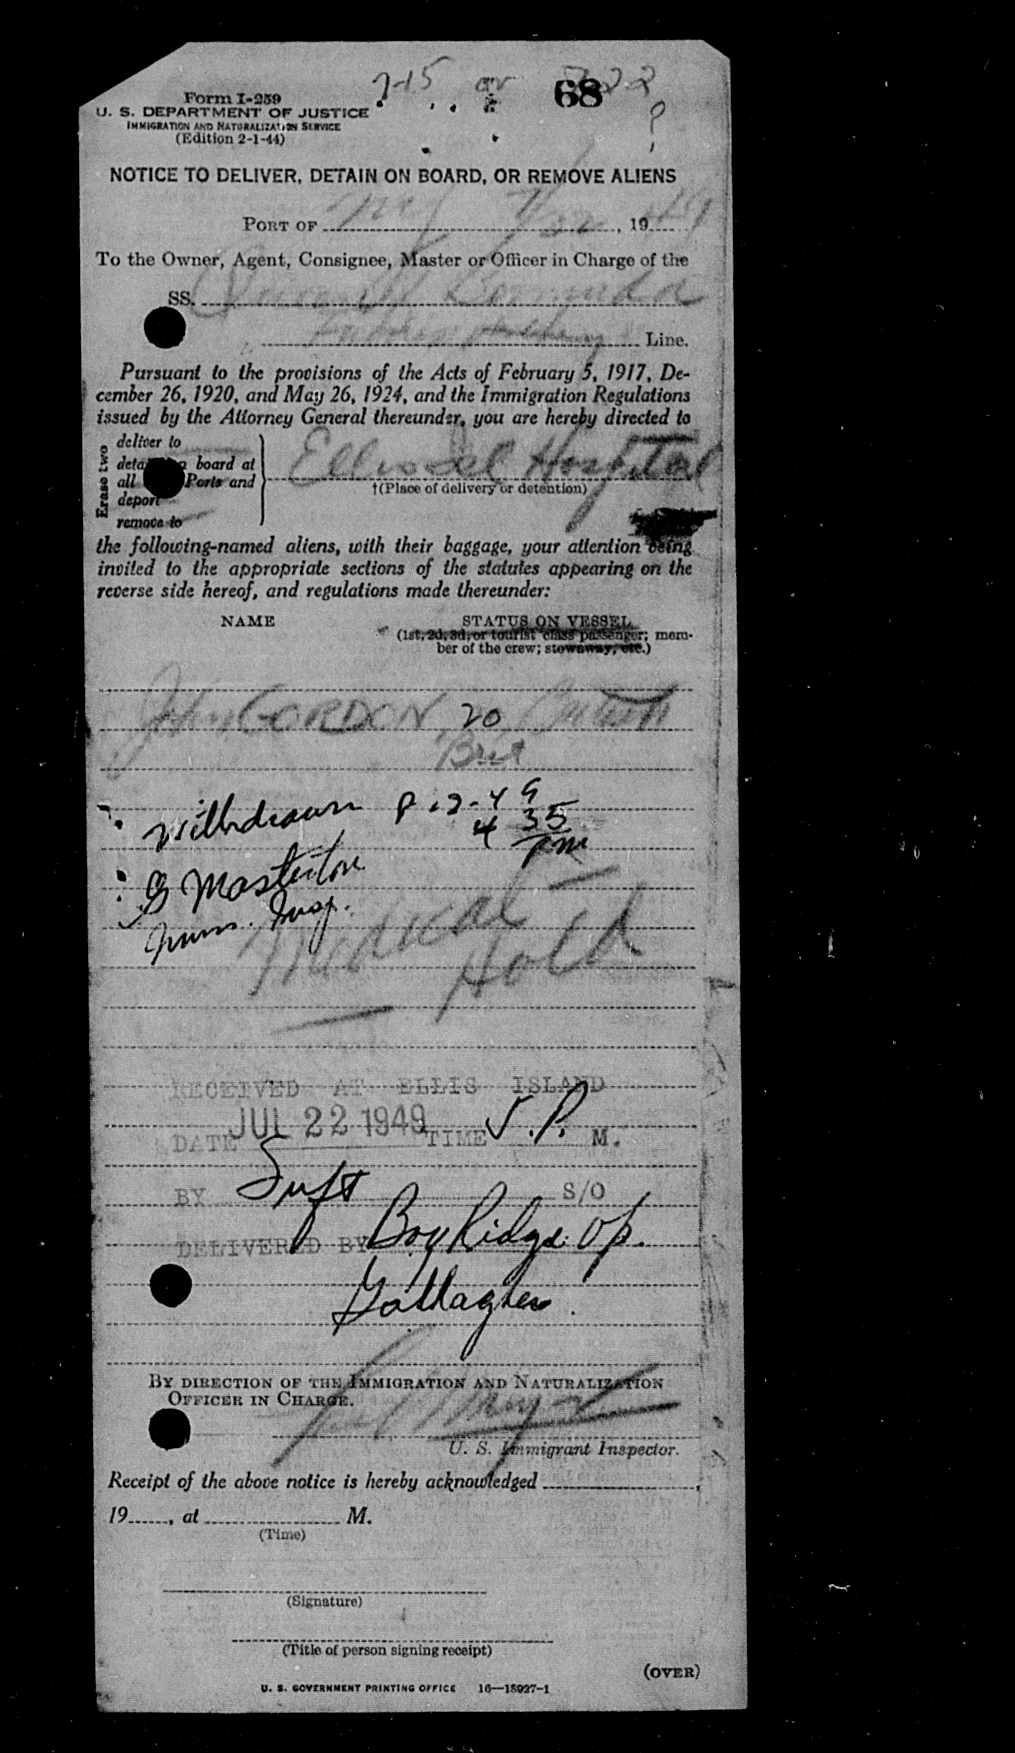 7-15 or
68
Form I-259
U. S. DEPARTMENT OF JUSTICE
IMMIGRATION AND NATURALIZATION SERVICE
(Edition 2-1-44)
NOTICE TO DELIVER, DETAIN ON BOARD, OR REMOVE ALIENS
PORT OF NY 7/22, 1949
To the Owner, Agent, Consignee, Master or Officer in Charge of the
SS. Queen of Bermuda
Line.
Pursuant to the provisions of the Acts of February 5, 1917, De-
cember 26, 1920, and May 26, 1924, and the Immigration Regulations
issued by the Attorney General thereunder, you are hereby directed to
Erase two
deliver to
detain on board at
all Ports and
deport
remove to
Ellis Isl Hospital
†(Place of delivery or detention)
the following-named aliens, with their baggage, your attention being
invited to the appropriate sections of the statutes appearing on the
reverse side hereof, and regulations made thereunder:
NAME STATUS ON VESSEL
(1st, 2d, 3d, or tourist class passenger; mem-
ber of the crew; stowaway, etc.)
John GORDON, 20 British
Brit
Withdrawn 8-2-49
4 35 pm
G Masterton
Imm. Insp.
Medical
Hold
RECEIVED AT ELLIS ISLAND
DATE JUL 22 1949 TIME 5. P. M.
BY S/O
DELIVERED BY Bay Ridge Op.
Gallagher.
BY DIRECTION OF THE IMMIGRATION AND NATURALIZATION
OFFICER IN CHARGE.
U. S. Immigrant Inspector.
Receipt of the above notice is hereby acknowledged ,
19 , at M.
(Time)
(Signature)
(Title of person signing receipt)
(OVER)
U. S. GOVERNMENT PRINTING OFFICE 16—18927-1